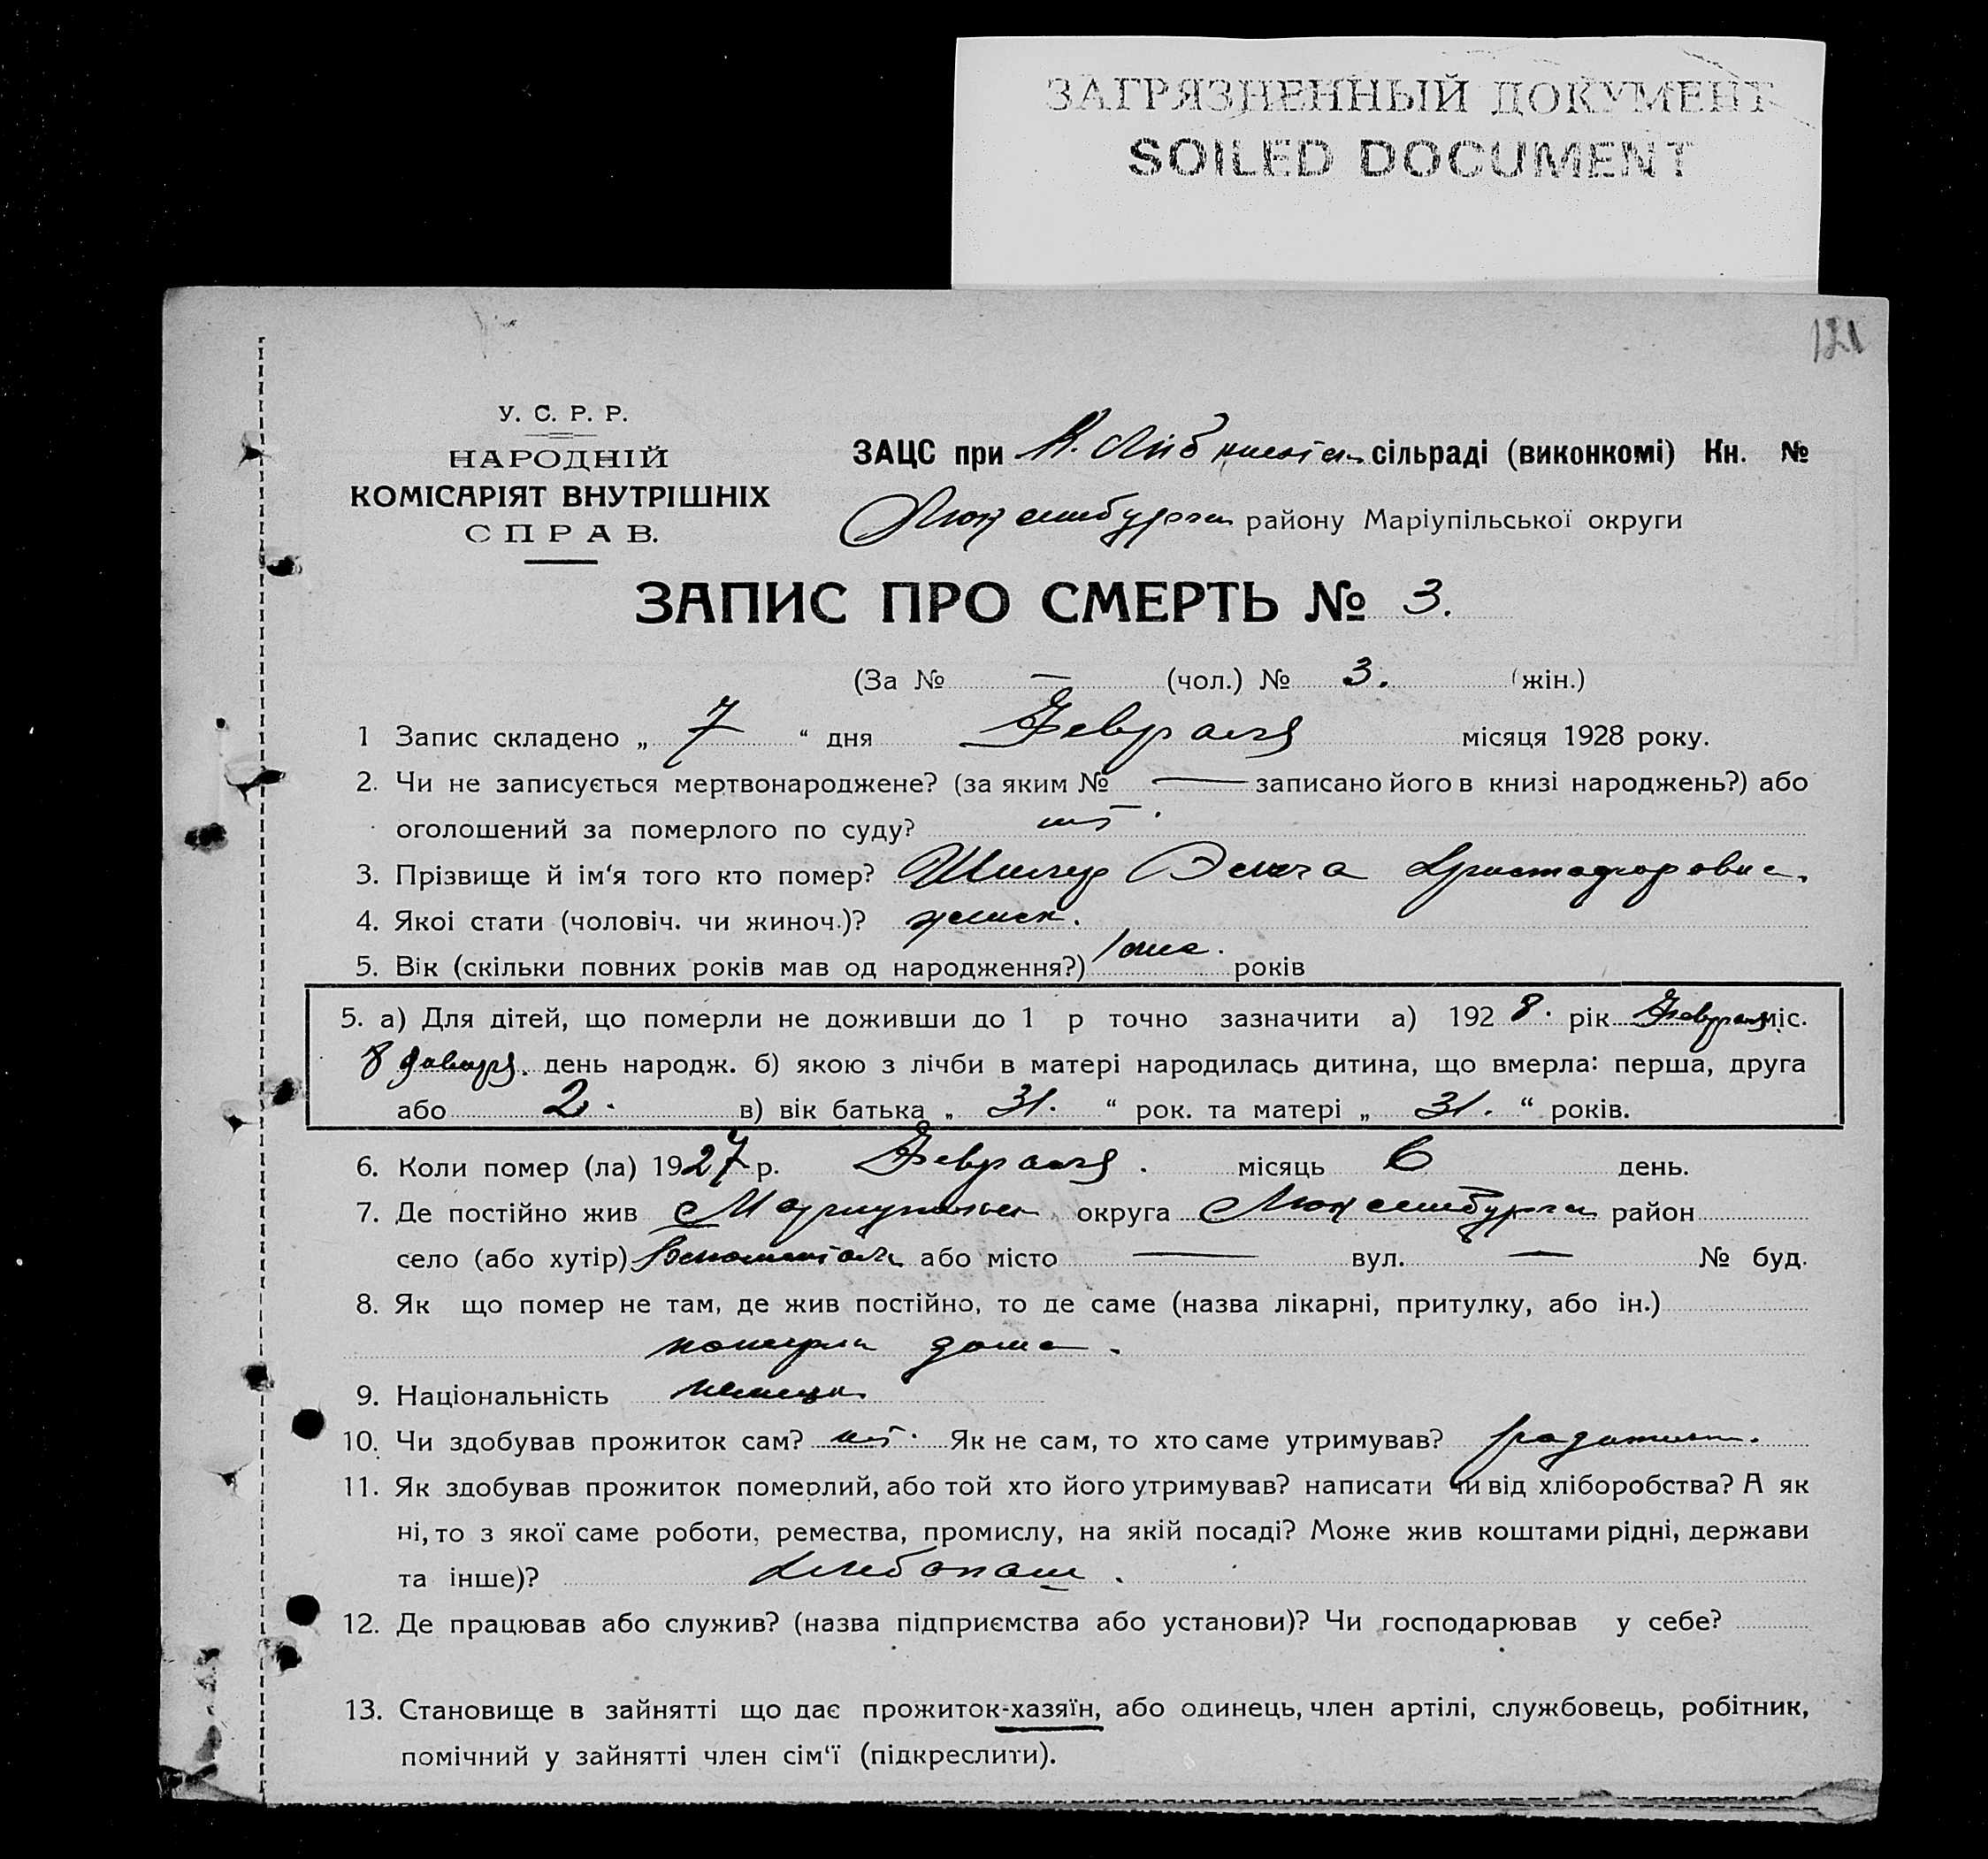 ЗАГРЯЗНЕННЫЙ ДОКУМЕНТ
SOILED DOCUMENT
121
У. С. Р. Р.
НАРОДНІЙ
КОМІСАРІЯТ ВНУТРІШНІХ
СПРАВ.
ЗАЦС при сільраді (виконкомі) Кн. №
району Маріупільської округи
ЗАПИС ПРО СМЕРТЬ № 3.
(За № — (чол.) № 3. (жін.)
1 Запис складено „ 7 “ дня Февраля місяця 1928 року.
2. Чи не записується мертвонароджене? (за яким № — записано його в книзі народжень?) або
оголошений за померлого по суду? нет.
3. Прізвище й ім‘я того кто помер? Христофоровна.
4. Якої стати (чоловіч. чи жиноч.)? женск.
5. Вік (скільки повних років мав од народження?) років
5. а) Для дітей, що померли не доживши до 1 р точно зазначити а) 1928. рік Февраля міс.
8 день народж. б) якою з лічби в матері народилась дитина, що вмерла: перша, друга
або 2. в) вік батька „ 31. “ рок. та матері „ 31. “ років.
6. Коли помер (ла) 1927 р. Февраля. місяць 6 день.
7. Де постійно жив округа район
село (або хутір) або місто — вул. — № буд.
8. Як що помер не там, де жив постійно, то де саме (назва лікарні, притулку, або ін.)
померла дома.
9. Національність немецк.
10. Чи здобував прожиток сам? нет. Як не сам, то хто саме утримував? родители.
11. Як здобував прожиток померлий, або той хто його утримував? написати чи від хліборобства? А як
ні, то з якої саме роботи, ремества, промислу, на якій посаді? Може жив коштами рідні, держави
та інше)? хлебопаш.
12. Де працював або служив? (назва підприємства або установи)? Чи господарював у себе?
13. Становище в зайнятті що дає прожиток-хазяїн, або одинець, член артілі, службовець, робітник,
помічний у зайнятті член сім‘ї (підкреслити).